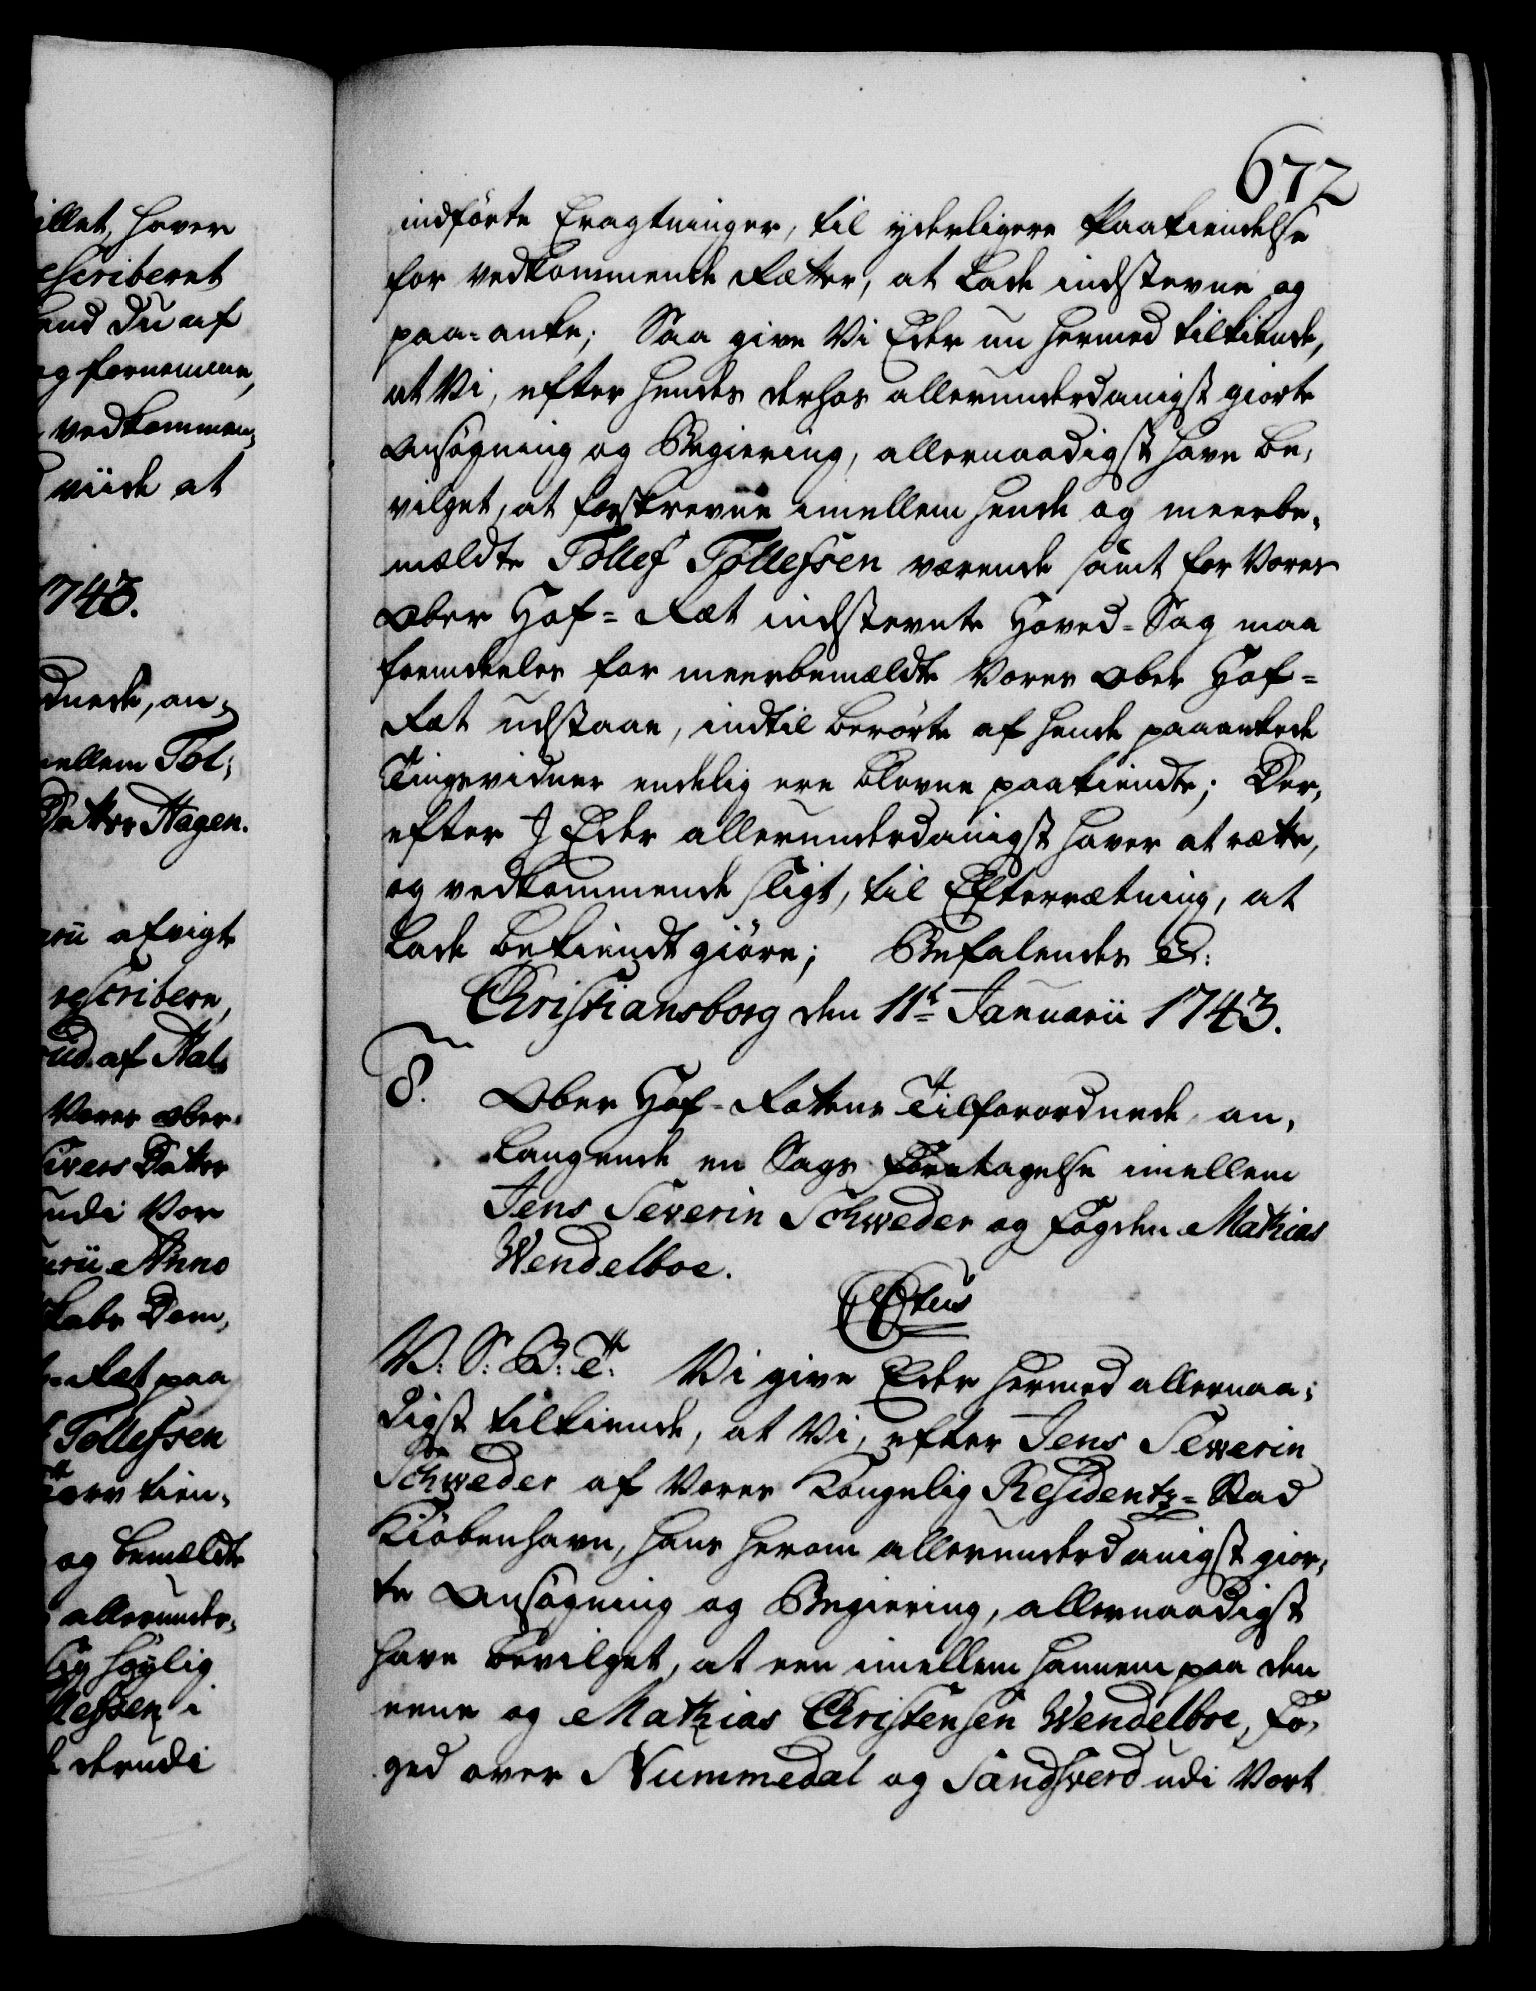 672
illet, haver
escriberet
end Du af
og fornemme,
vedkommen,
viide at
1743.
dnede, an,
mellem Tol,
Datter Hagen.
arii afvigt
rescribere,
rud af Hals
Vores Ober-
Civers Datter
udi Vor
arii Anno
Dom,
Ret paa
Tollefsen
og bemeldte
allerunder,
høylig
lefsen i
derudi
indførte Eragtninger, til yderligere Paakiendelse
for vedkommende Retter, at lade indstevne og
paa-anke; Saa give Vi Eder nu hermed tilkiende,
at Vi, efter hendes derhos allerunderdanigst giorte
Ansøgning og Begiering, allernaadigst have be,
vilget, at forskrevne imellem hende og meerbe,
meldte Tollef Tollefsen værende samt for Vores
Ober Hof-Ret indstevnte Hoved-Sag maa
fremdeeles for meerbemeldte Vores Ober Hof-
Ret udstaae, indtil berørte af hende paaankede
Tingsvidner endelig ere blevne paakiendte; Der,
efter I Eder allerunderdanigst haver at rette,
og vedkommende sligt, til Efterretning, at
lade bekiendtgiøre; Befalendes &:
Christiansborg den 11t Januarii 1743.
8. Ober Hof-Rettens Tilforordnede, an,
langende en Sags Foretagelse imellem
Jens Severin Schweder og Fogden Mathias
Wendelboe.
V: S: B: T: Vi give Eder hermed allernaa,
digst tilkiende, at Vi, efter Jens Severin
Schweder af Vores Kongelig Residentz-Stad
Kiøbenhavn, hans herom allerunderdanigst gior,
te Ansøgning og Begiering, allernaadigst
have bevilget, at een imellem hannem paa den
eene og Mathias Christensen Wendelboe, Fo,
ged over Nummedal og Sandsverd udi Vort